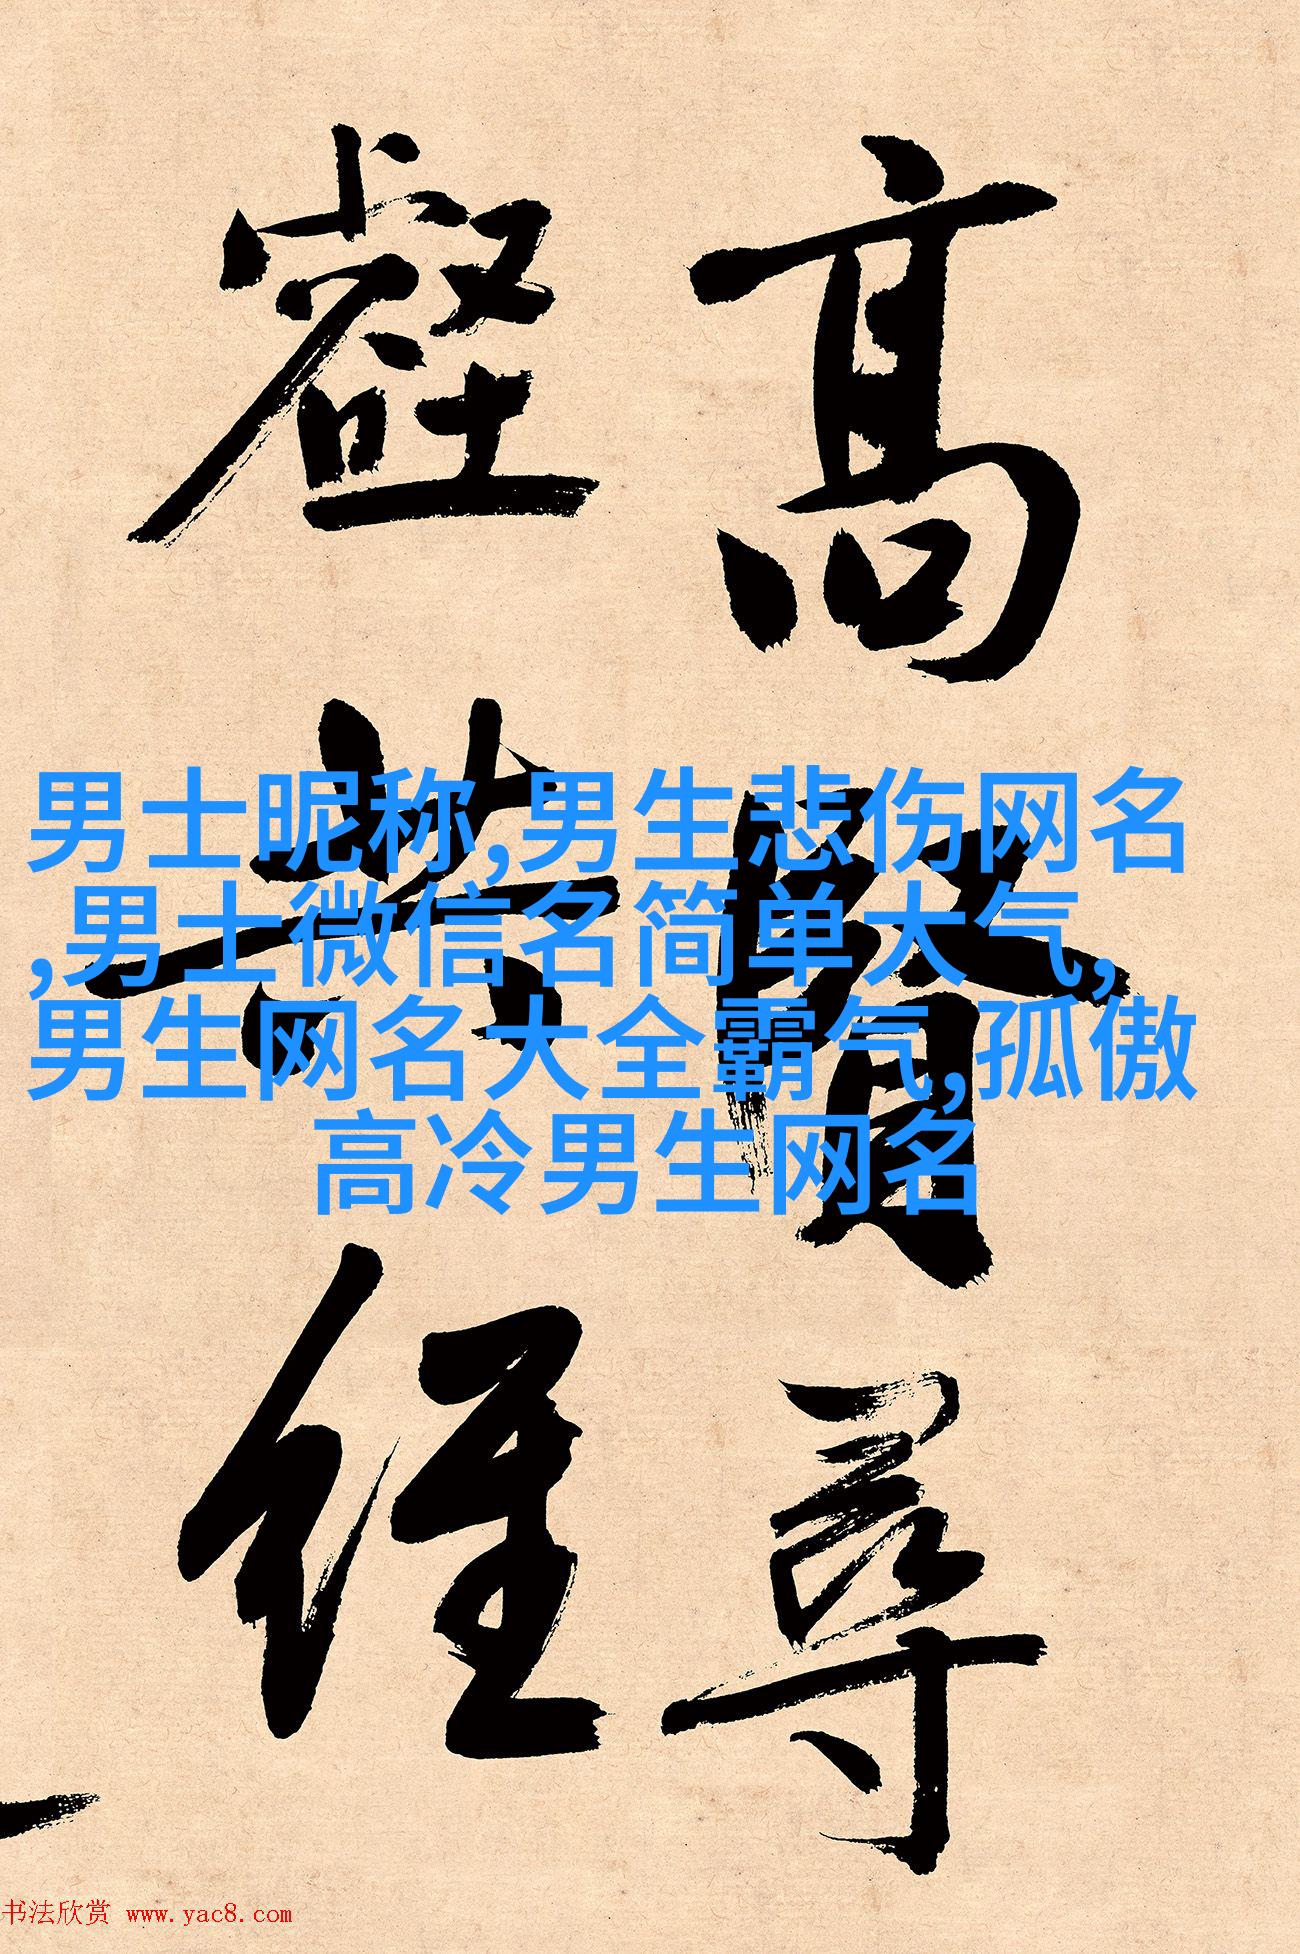 高賢尋
壑
經
男士昵称,男生悲伤网名
,男士微信名简单大气,
男生网名大全霸气,孤傲
高冷男生网名
书法欣赏 www.yac8.com